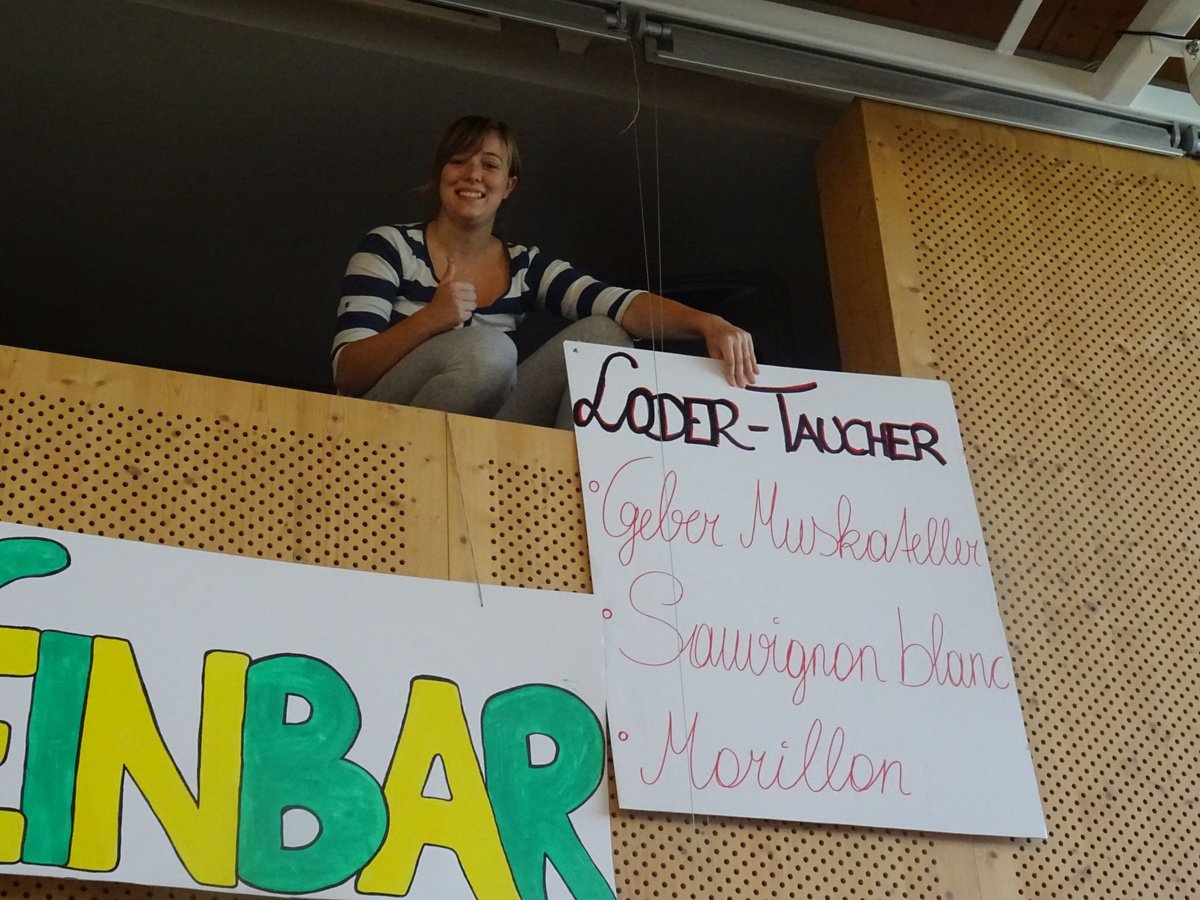 LODER-TAUCHER
Geber Muskateller
Sauvignon blanc
Morillon
EINBAR